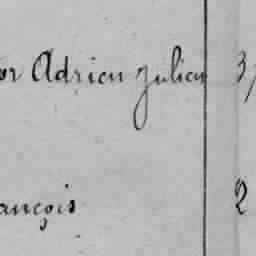 or Adrien Julien 3
ançois 2